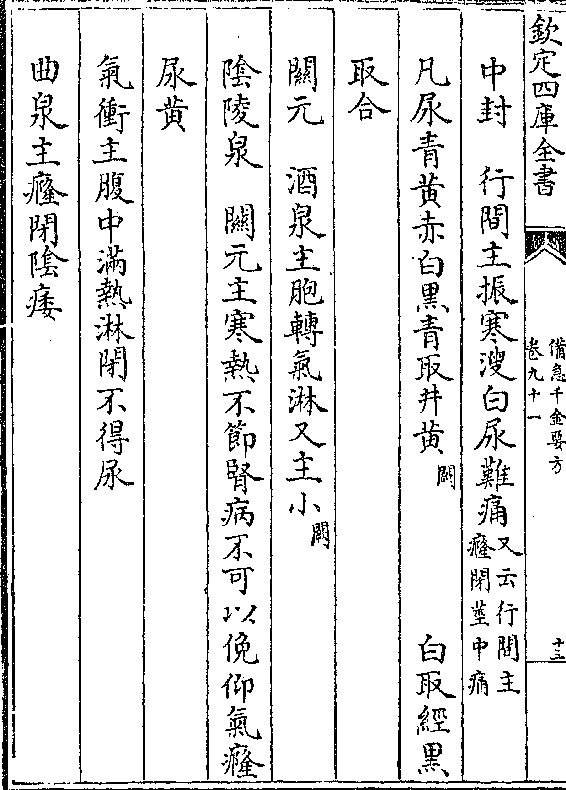 欽定四庫全書
備急千金要方
卷九十一
十三
中封　行間主振寒溲白尿難痛又云行間主
癃閉莖中痛
凡尿青黃赤白黑青取井黃闕　白取經黑
取合
關元　酒泉主胞轉氣淋又主小闕
陰陵泉　關元主寒熱不節腎病不可以俛仰氣癃
尿黃
氣衝主腹中滿熱淋閉不得尿
曲泉主癃閉陰痿